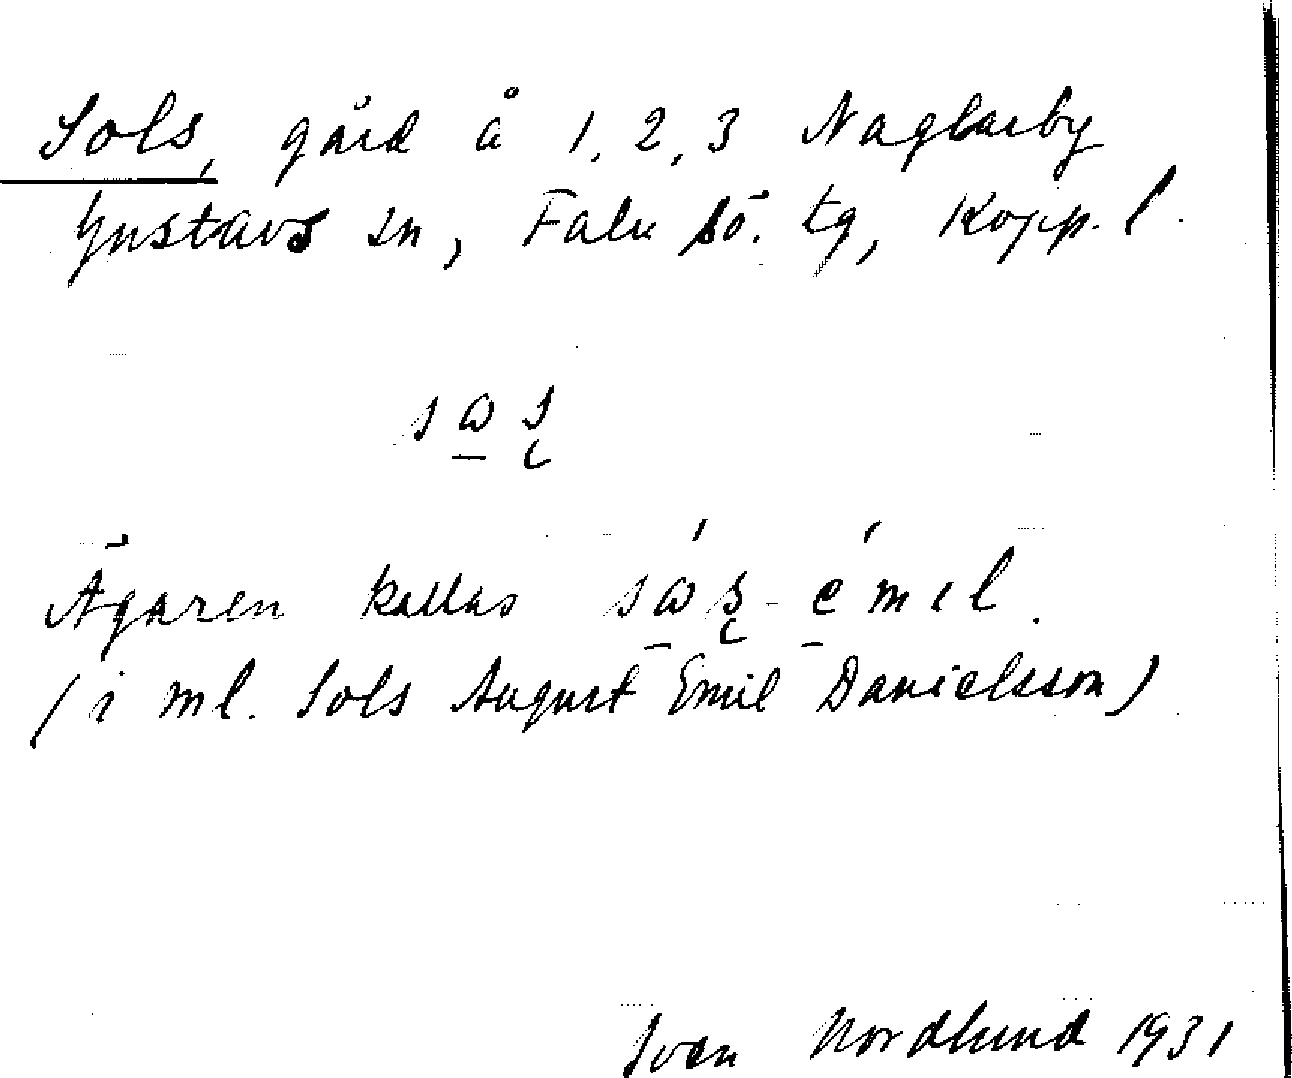 Sols, gård å 1, 2, 3 Naglarby
Gustavs sn, Falu sö. tg, Kopp. l.
Ägaren kallas
(i ml. Sols August Emil Danielsson)
Sven Nordlund 1931